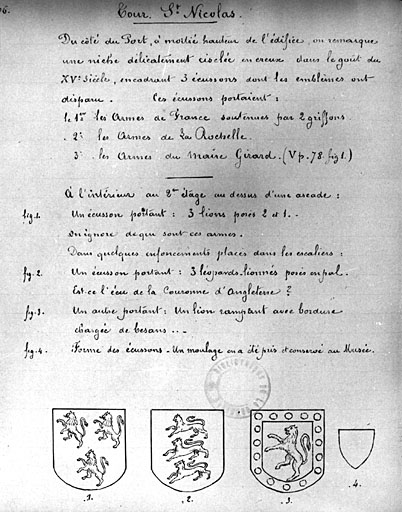 76.
Tour. St Nicolas.
Du côté du Port, à moitié hauteur de l'édifice, on remarque
une niche délicatement ciselée en creux dans le goût du
XVe Siècle, encadrant 3 écussons dont les emblèmes ont
disparu. Ces écussons portaient :
le 1er les Armes de France soutenues par 2 griffons
. 2e les Armes de La Rochelle.
3e les Armes du Maire Girard. (V p. 78. fig 1.)
A l'intérieur au 2me étage au dessus d'une arcade :
fig. 1. Un écusson portant : 3 lions posés 2 et 1. .
On ignore de qui sont ces armes.
Dans quelques enfoncements placés dans les escaliers :
fig. 2. Un écusson portant : 3 léopards-lionnés posés en pal.
Est-ce l'écu de la Couronne d'Angleterre ?
fig. 3. Un autre portant : Un lion rampant avec bordure
chargée de besans ...
fig. 4. Forme des écussons. Un moulage en a été pris et conservé au Musée.
.1. .2. .3. .4.